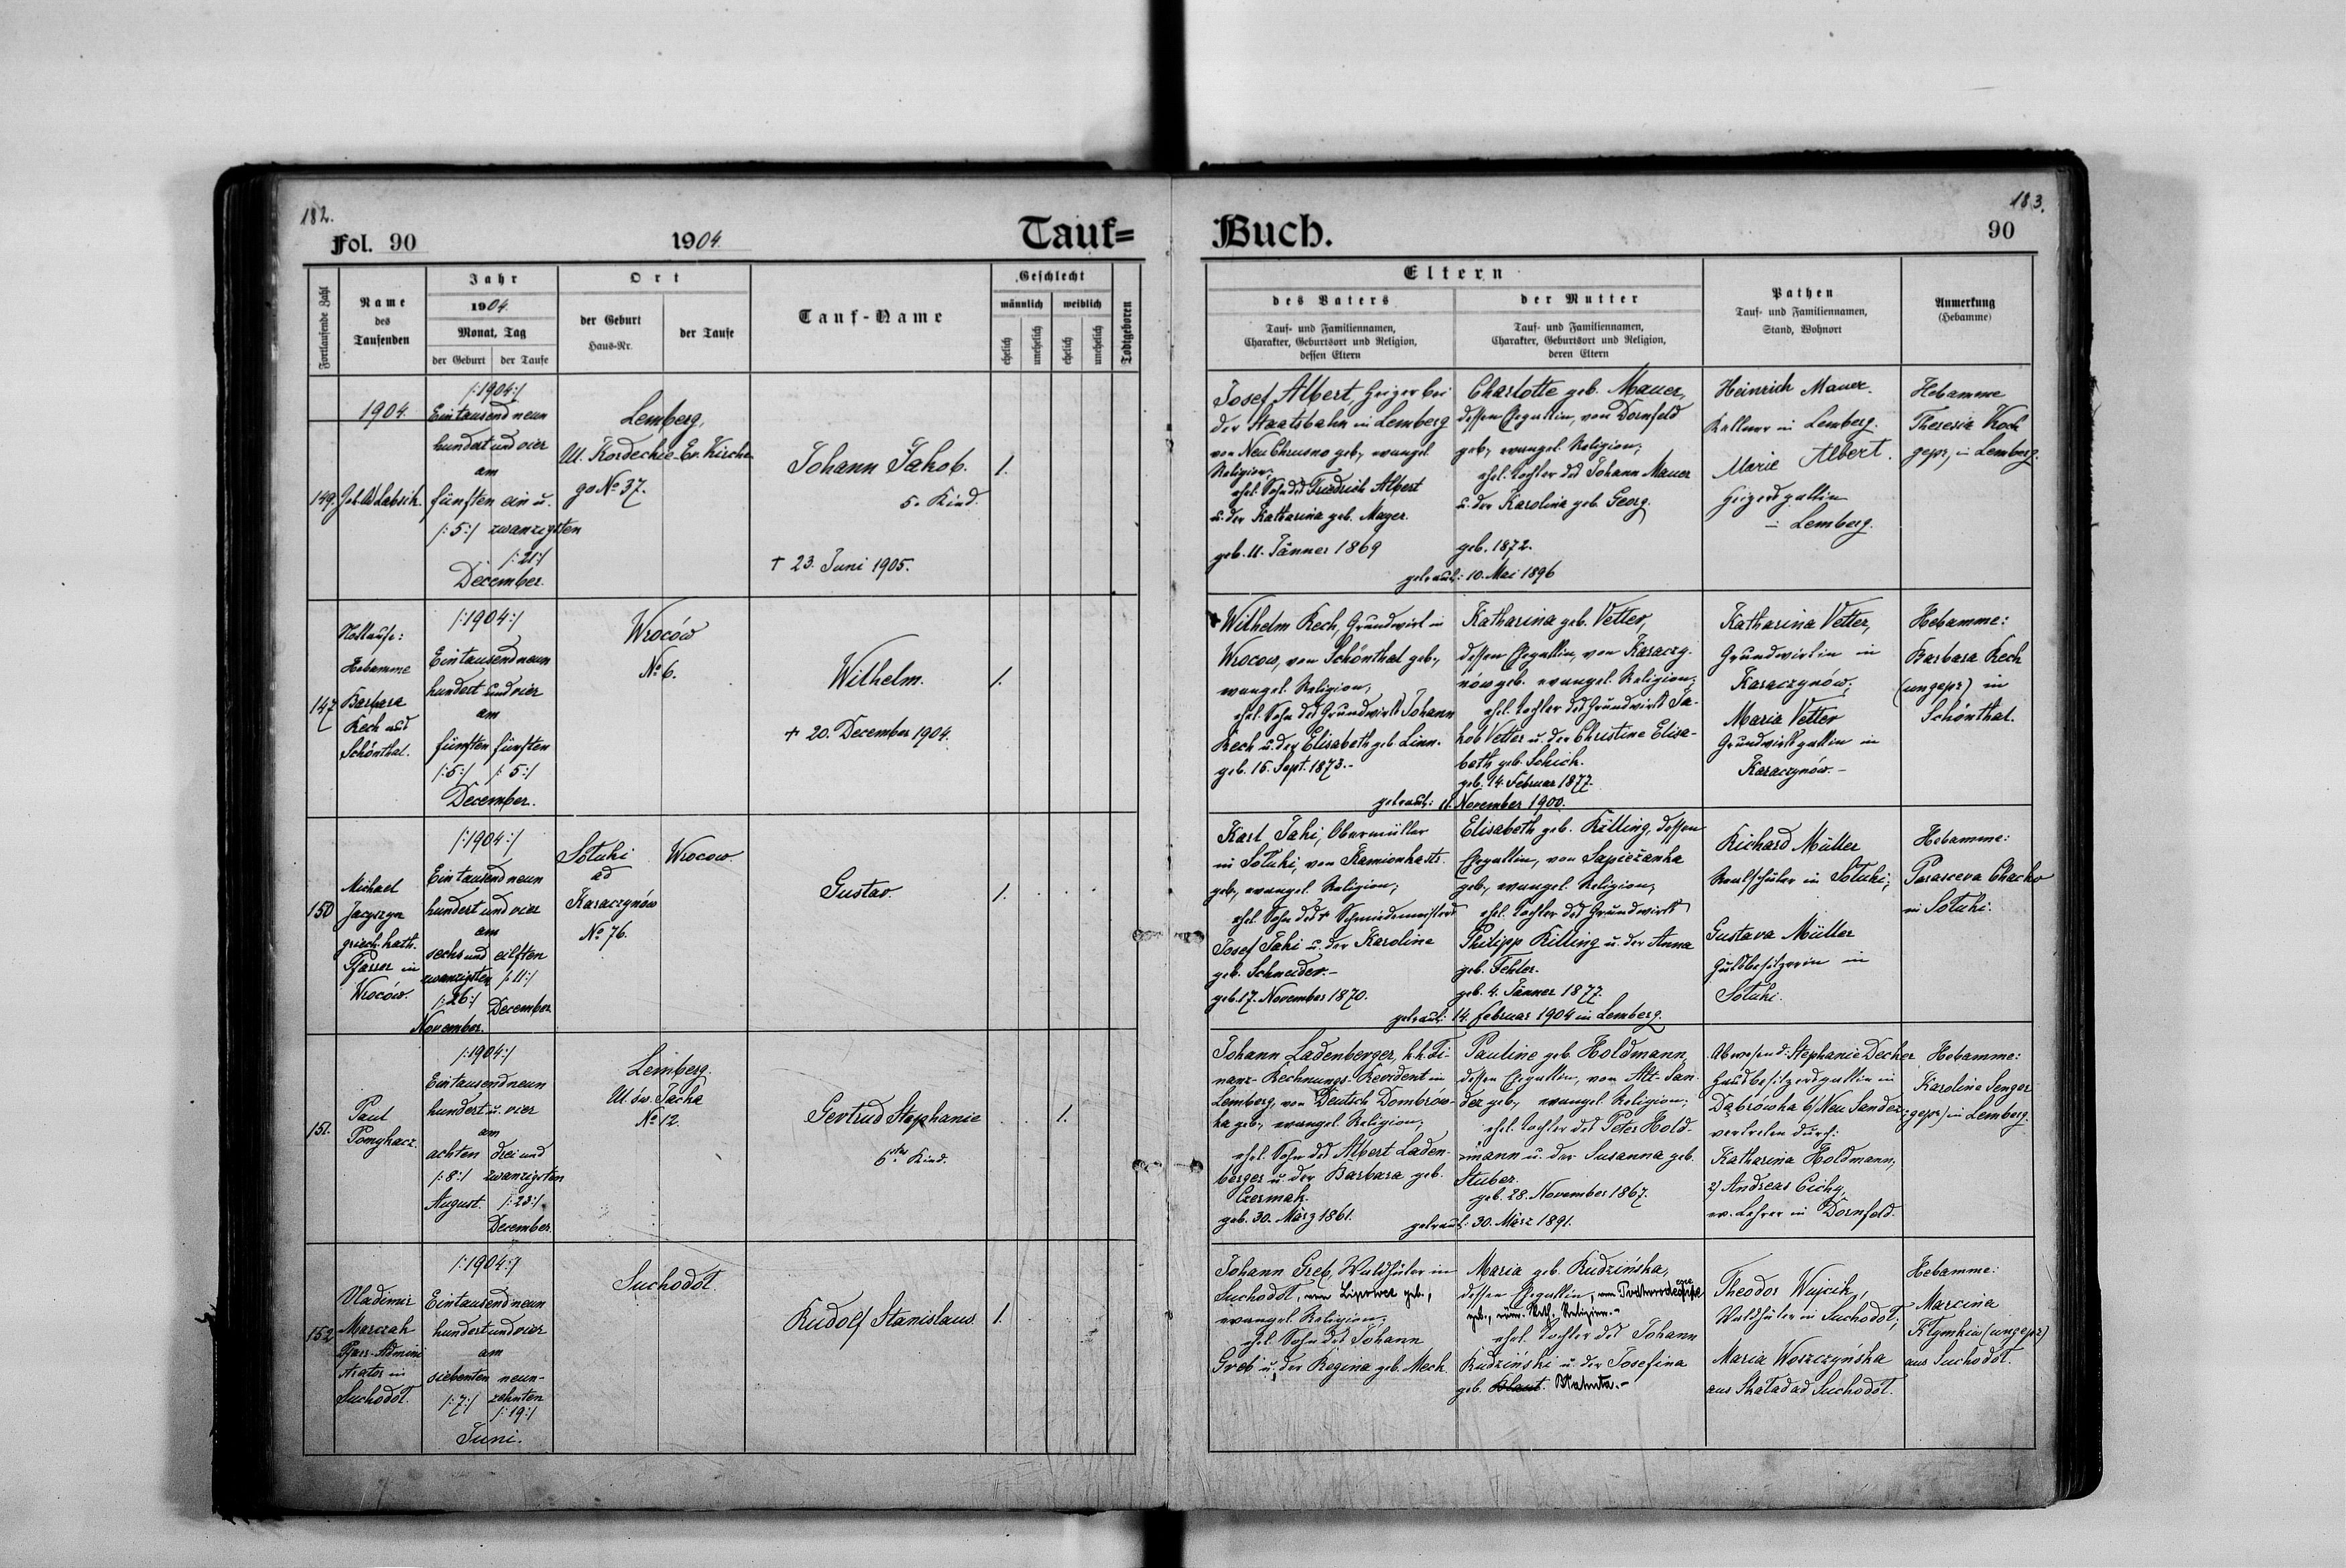 182.
Fol. 90
1904.
Tauf=
Fortlaufende Zahl
Name
des
Taufenden
Jahr
1904.
Monat, Tag
der Geburt
der Taufe
Ort
der Geburt
Haus-Nr.
der Taufe
Tauf-Name
Geschlecht
männlich
weiblich
ehelich
unehelich
ehelich
unehelich
Todtgeboren
1904
149.
/:1904:/
Ein tausend neun
hundert und vier
am
fünften ein u.
/:5:/ zwanzigsten
/:21:/
December.
Lemberg,
Ev. Kirche
go No 37.
Johann Jakob.
5. Kind.
† 23. Juni 1905.
1.
147
Nottaufe:
Hebamme
Barbara
Rech aus
Schönthal.
/:1904:/
Ein tausend neun
hundert und vier
am
fünften fünften
/:5:/ /:5:/
December.
Wroców
No 6.
Wilhelm.
† 20. December 1904.
1.
150
Michael
Jacyszyn
griech. kath.
Pfarrer in
Wroców.
/:1904:/
Ein tausend neun
hundert und vier
am
sechs und eilften
zwanzigsten /:11:/
/:26:/ December
November.
Sołuki
ad
Karaczynów
No 76.
Wrocow.
Gustav.
1.
151.
Paul
/:1904:/
Ein tausend neun
hundert u. vier
am
achten drei und
/:8:/ zwanzigsten
August. /:23:/
December.
Lemberg.
Ul. św. Jacka
No 12.
Gertrud Stephanie
6tes Kind.
1.
152
Vladimir
Marczak
Pfarr-Admini
strator in
Suchodół.
/:1904:/
Ein tausend neun
hundert und vier
am
siebenten neun-
/:7:/ zehnten
/:19:/
Juni.
Suchodół.
Rudolf Stanislaus.
1.
183.
Buch.
90
Eltern
des Vaters
Tauf- und Familiennamen,
Charakter, Geburtsort und Religion,
dessen Eltern
der Mutter
Tauf- und Familiennamen,
Charakter, Geburtsort und Religion,
deren Eltern
Pathen
Tauf- und Familiennamen,
Stand, Wohnort
Anmerkung
(Hebamme)
Josef Albert, Heizer bei
der Staatsbahn in Lemberg
von Neu Chrusno geb., evangel
Religion;
ehel. Sohn des Friedrich Albert
u. der Katharina geb. Mayer.
geb. 11. Jänner 1869
Charlotte geb. Mauer,
dessen Ehegattin, von Dornfeld
geb., evangel. Religion;
ehel. Tochter des Johann Mauer
u. der Karolina geb. Georg.
geb. 1872.
getraut: 10. Mai 1896
Heinrich Mauer.
Kellner in Lemberg.
Marie Albert.
Heizersgattin
in Lemberg.
Hebamme
Theresia Koch
gepr., in Lemberg.
Wilhelm Rech, Grundwirt in
Wrocow, von Schönthal geb.,
evangel. Religion;
ehel. Sohn des Grundwirts Johann
Rech u. der Elisabeth geb. Linn.
geb. 15. Sept. 1873.-
Katharina geb. Vetter,
dessen Ehegattin, von Karaczy-
nów geb. evangel. Religion;
ehel. Tochter des Grundwirts Ja-
kob Vetter u. der Christine Elisa-
beth geb. Schick.
geb. 14. Februar 1877.
getraut: 11. November 1900.
Katharina Vetter,
Grundwirtin in
Karaczynów;
Maria Vetter
Grundwirtsgattin in
Karaczynów.-
Hebamme:
Barbara Rech
(ungepr.) in
Schönthal.
Karl Jaki, Obermüller
in Sołuki, von Kamionka str.
geb., evangel. Religion;
ehel. Sohn des † Schmiedemeisters
Josef Jaki u. der Karoline
geb. Schneider.-
geb. 17. November 1870.
Elisabeth geb. Killing, dessen
Ehegattin, von Sapieżanka
geb., evangel. Religion;
ehel. Tochter des Grundwirts
Philipp Killing u. der Anna
geb. Fehler.
geb. 4. Jänner 1877.
getraut: 14. Februar 1904 in Lemberg.
Richard Müller
Realschüler in Sołuki;
Gustava Müller
Gutsbesitzerin in
Sołuki.
Hebamme:
Parasceva Chacko
in Sołuki.
Johann Ladenberger, k.k. Fi-
nanz-Rechnungs-Revident in
Lemberg, von Deutsch Dombrow-
ka geb., evangel. Religion;
ehel. Sohn des Albert Laden-
berger u. der Barbara geb.
Czermak.
geb. 30. März 1861.
Pauline geb. Holdmann,
dessen Ehegattin, von Alt-San-
dez geb., evangel. Religion;
ehel. Tochter des Peter Hold-
mann u. der Susanna geb.
Stuber.
geb. 28. November 1867.
getraut: 30. März 1891.
Abwesend: Stephanie Decker
Hausbesitzersgattin in
Dąbrowka b/ Neu Sandez
vertreten durch:
Katharina Holdmann,
2) Andreas Cichy,
ev. Lehrer in Dornfeld.
Hebamme:
Karoline Senger
(gepr.) in Lemberg.
Johann Greb, Waldhüter in
Suchodół, von Lipowce geb.,
evangel. Religion;
ehel. Sohn des Johann
Greb u. der Regina geb. Mech.
Maria geb. Rudzińska,
dessen Ehegattin, von
geb., röm. kath. Religion.-
ehel. Tochter des Johann
Rudziński u. der Josefina
geb.
Theodor Wujcik,
Waldhüter in Suchodół;
Maria Woszczyńska
aus Skała ad Suchodół.
Hebamme:
Marcina
Klymkiw (ungepr.)
aus Suchodół.